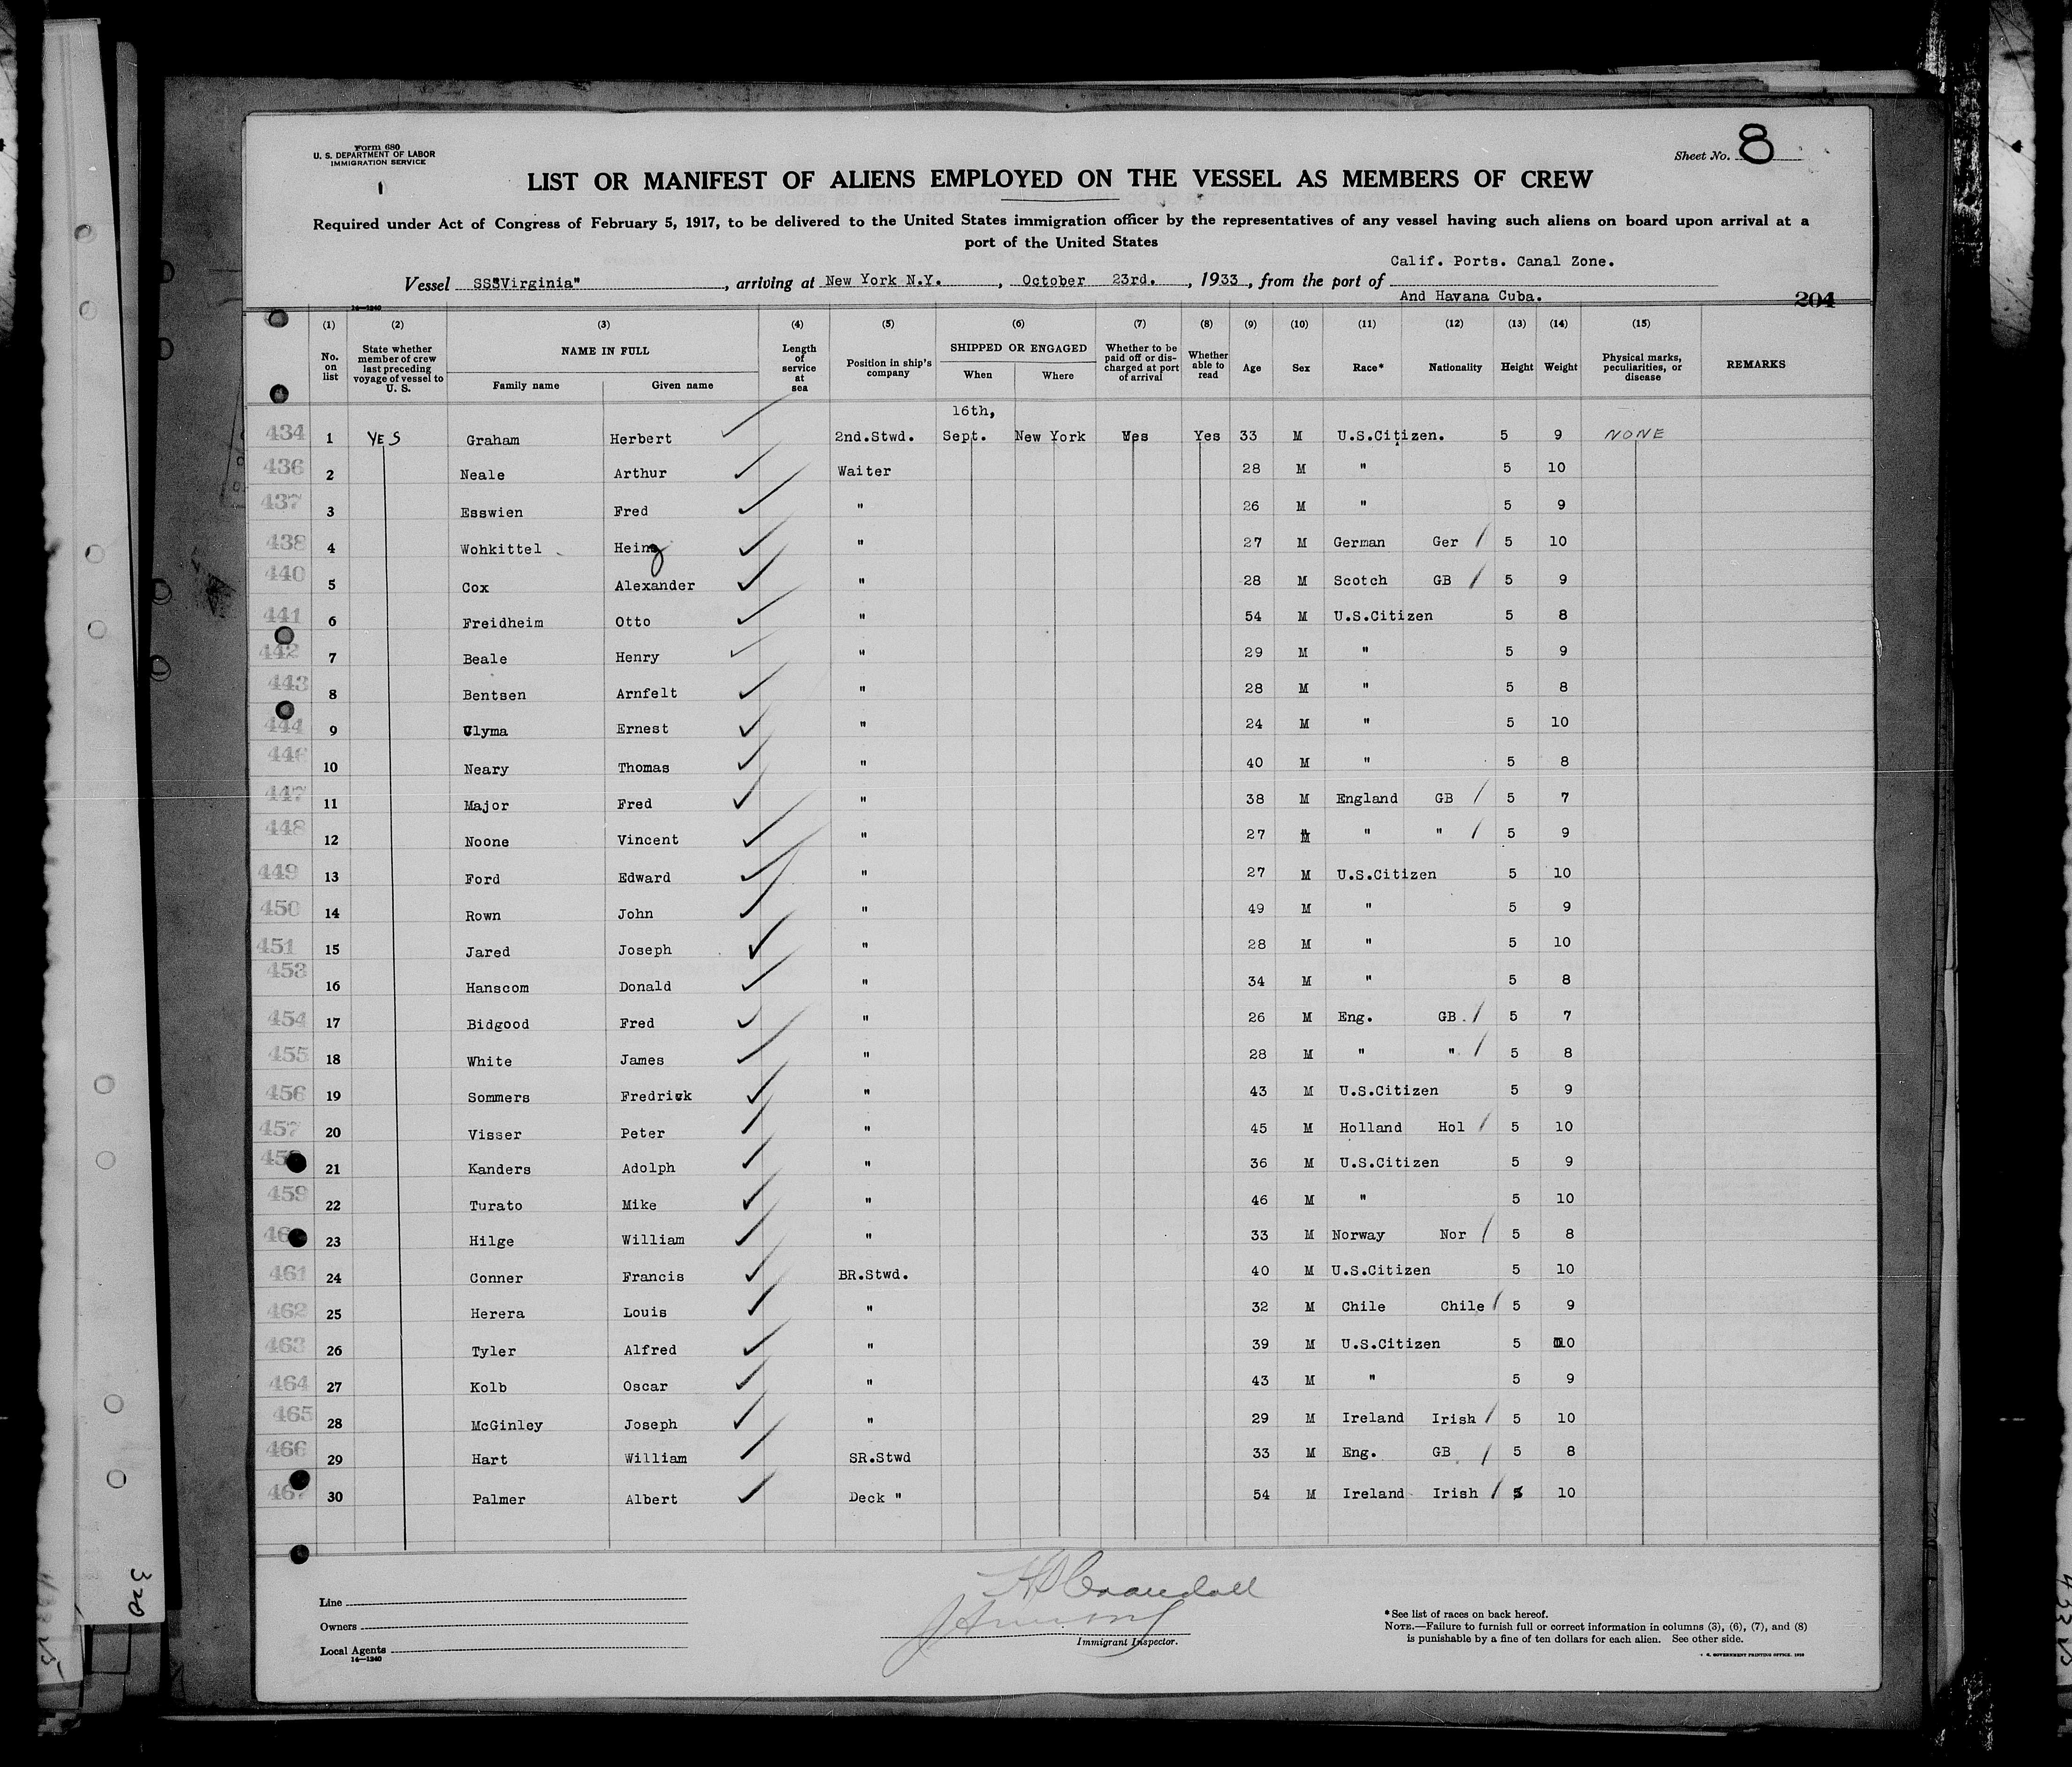 Form 680
U. S. DEPARTMENT OF LABOR
IMMIGRATION SERVICE
Sheet No. 8
LIST OR MANIFEST OF ALIENS EMPLOYED ON THE VESSEL AS MEMBERS OF CREW
Required under Act of Congress of February 5, 1917, to be delivered to the United States immigration officer by the representatives of any vessel having such aliens on board upon arrival at a
port of the United States
Calif. Ports. Canal Zone.
Vessel SS"Virginia" , arriving at New York N.Y. , October 23rd. , 1933 , from the port of
And Havana Cuba.
204
14—1240
(1) (2) (3) (4) (5) (6) (7) (8) (9) (10) (11) (12) (13) (14) (15)
No. on list State whether member of crew last preceding voyage of vessel to U. S. NAME IN FULL Family name Given name Length of service at sea Position in ship's company SHIPPED OR ENGAGED When Where Whether to be paid off or discharged at port of arrival Whether able to read Age Sex Race* Nationality Height Weight Physical marks, peculiarities, or disease REMARKS
16th,
434 1 YES Graham Herbert 2nd.Stwd. Sept. New York Yes Yes 33 M U.S.Citizen. 5 9 NONE
436 2 Neale Arthur Waiter 28 M " 5 10
437 3 Esswien Fred " 26 M " 5 9
438 4 Wohkittel Heinz " 27 M German Ger 5 10
440 5 Cox Alexander " 28 M Scotch GB 5 9
441 6 Freidheim Otto " 54 M U.S.Citizen 5 8
442 7 Beale Henry " 29 M " 5 9
443 8 Bentsen Arnfelt " 28 M " 5 8
444 9 Clyma Ernest " 24 M " 5 10
446 10 Neary Thomas " 40 M " 5 8
447 11 Major Fred " 38 M England GB 5 7
448 12 Noone Vincent " 27 M " " 5 9
449 13 Ford Edward " 27 M U.S.Citizen 5 10
450 14 Rown John " 49 M " 5 9
451 15 Jared Joseph " 28 M " 5 10
453 16 Hanscom Donald " 34 M " 5 8
454 17 Bidgood Fred " 26 M Eng. GB. 5 7
455 18 White James " 28 M " " 5 8
456 19 Sommers Fredrick " 43 M U.S.Citizen 5 9
457 20 Visser Peter " 45 M Holland Hol 5 10
21 Kanders Adolph " 36 M U.S.Citizen 5 9
459 22 Turato Mike " 46 M " 5 10
23 Hilge William " 33 M Norway Nor 5 8
461 24 Conner Francis BR.Stwd. 40 M U.S.Citizen 5 10
462 25 Herera Louis " 32 M Chile Chile 5 9
463 26 Tyler Alfred " 39 M U.S.Citizen 5 10
464 27 Kolb Oscar " 43 M " 5 9
465 28 McGinley Joseph " 29 M Ireland Irish 5 10
466 29 Hart William SR.Stwd 33 M Eng. GB 5 8
467 30 Palmer Albert Deck " 54 M Ireland Irish 5 10
Line
Owners
Local Agents
14—1240
Immigrant Inspector.
*See list of races on back hereof.
NOTE.—Failure to furnish full or correct information in columns (3), (6), (7), and (8)
is punishable by a fine of ten dollars for each alien. See other side.
320